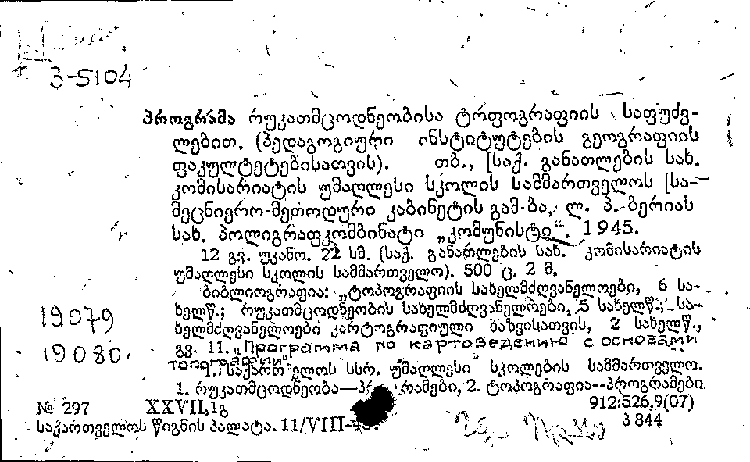 3-5104
პროგრამა რუკათმცოდნეობისა ტოპოგრაფიის საფუძვ-
ლებით. (პედაგოგიური ინსტიტუტების გეოგრაფიის
ფაკულტეტებისათვის). თბ., [საქ. განათლების სახ.
კომისარიატის უმაღლესი სკოლის სამმართველოს [სა-
მეცნიერო-მეთოდური კაბინეტის გამ-ბა, ლ. პ. ბერიას
სახ. პოლიგრაფკომბინატი „კომუნისტი“. 1945.
12 გვ. უყანო. 22 სმ. (საქ. განათლების სახ. კომისარიატის
უმაღლესი სკოლის სამმართველო). 500 ც. 2 მ.
ბიბლიოგრაფია: „ტოპოგრაფიის სახელმძღვანელოები, 6 სა-
ხელწ.; რუკათმცოდნეობის სახელმძღვანელოები, 5 სახელწ.; სა-
ხელმძღვანელოები კარტოგრაფიული ხაზვისათვის, 2 სახელწ.,
გვ. 11. „Программа по картоведению с основами
топографии“
1. საქართველოს სსრ. უმაღლესი სკოლების სამმართველო.
1. რუკათმცოდნეობა—პროგრამები, 2. ტოპოგრაფია--პროგრამები.
19079
19080
№ 297 XXVII,1გ 912:526.9(07)
საქართველოს წიგნის პალატა. 11/VIII- 3844